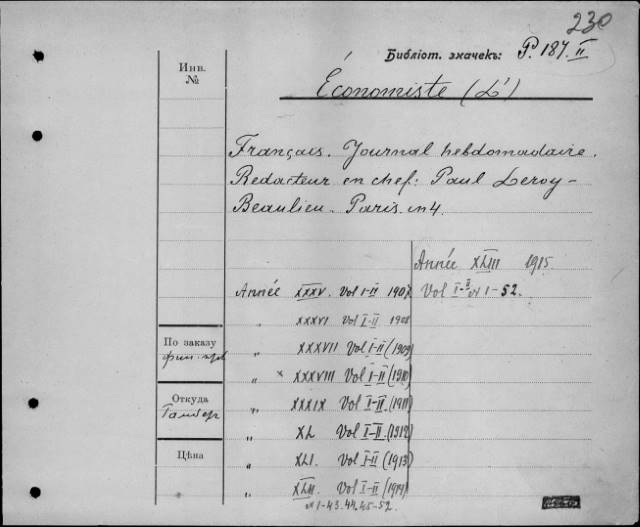 230
Библіот. значекъ: P. 187. II
Инв. №
Économiste (L')
Français. Journal hebdomadaire.
Redacteur en chef: Paul Leroy-
Beaulieu. Paris. in 4.
Année XXXV. Vol I-II 1907
„ XXXVI Vol I-II 1908
„ XXXVII Vol I-II (1909)
„ × XXXVIII Vol I-II (1910)
„ XXXIX Vol I-II (1911)
„ XL Vol I-II (1912)
„ XLI. Vol I-II (1913)
„ XLII. Vol I-II (1914)
№ 1-43.44.45-52.
Année XLIII 1915
Vol I-II № 1-52.
По заказу
Откуда
Цѣна